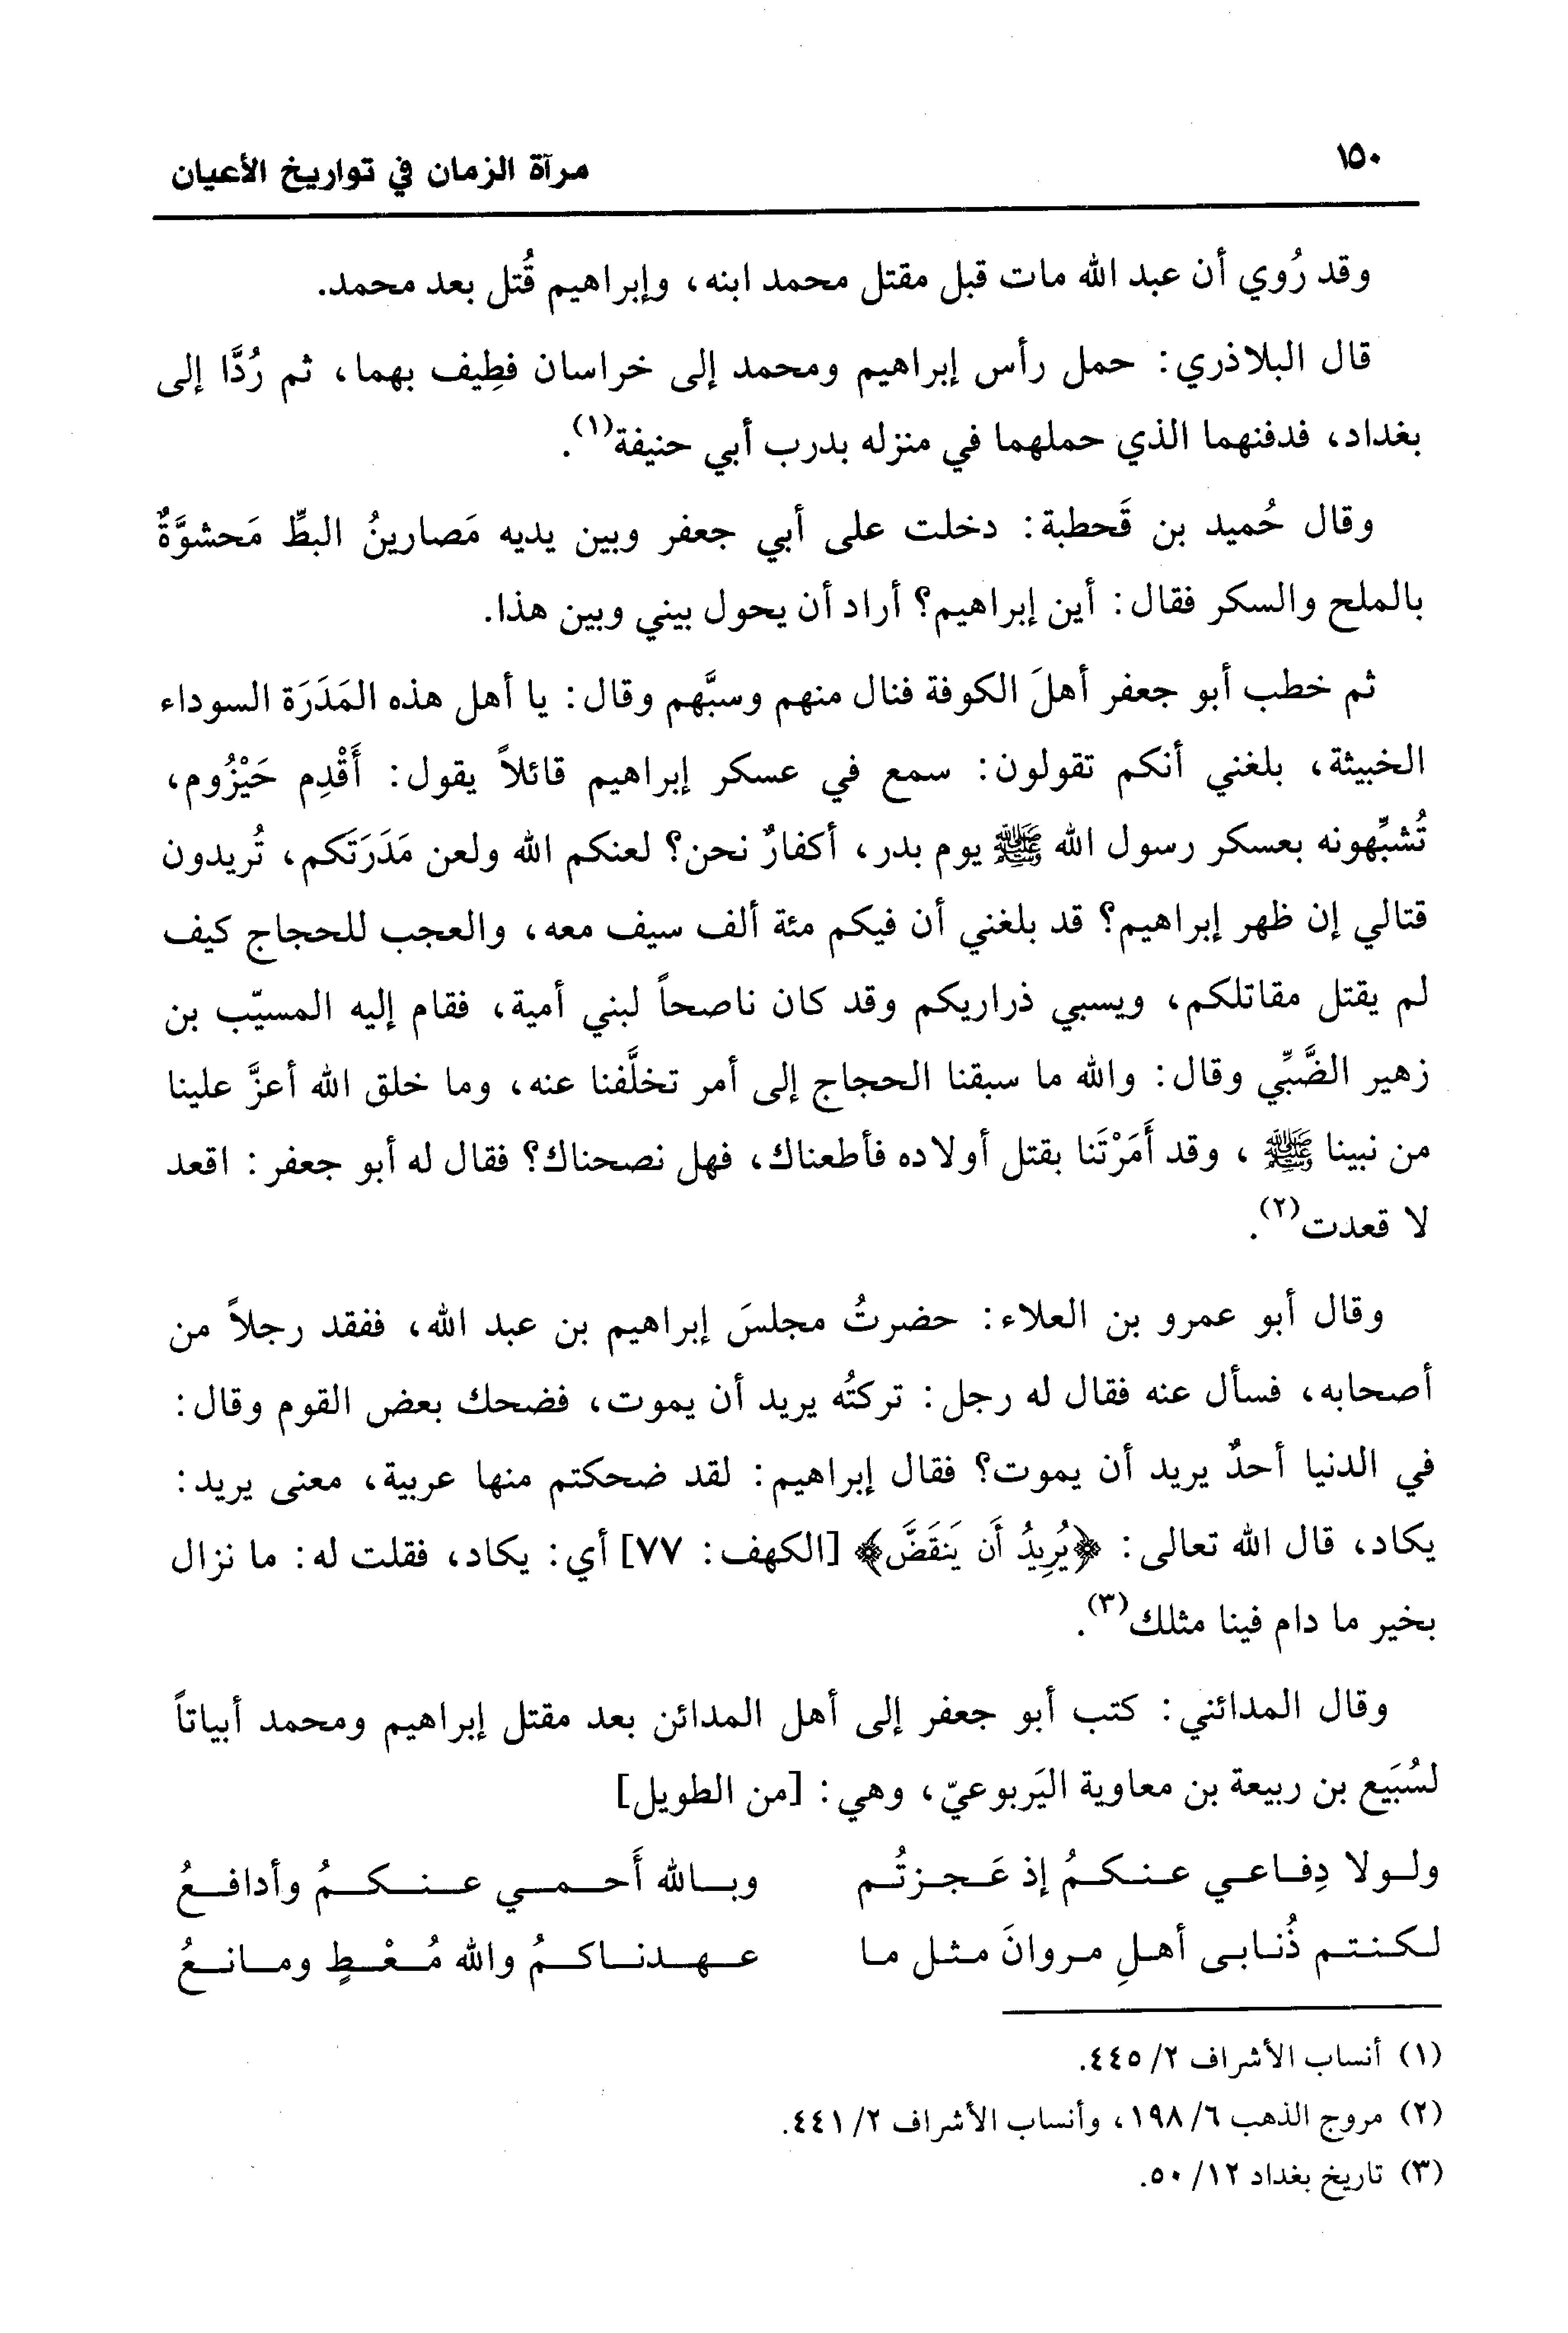 ١٥٠
مرآة الزمان في تواريخ الأعيان
وقد رُوي أن عبد الله مات قبل مقتل محمد ابنه، وإبراهيم قُتل بعد محمد.
قال البلاذري: حمل رأس إبراهيم ومحمد إلى خراسان فطِيف بهما، ثم رُدَّا إلى
بغداد، فدفنهما الذي حملهما في منزله بدرب أبي حنيفة(١).
وقال حُميد بن قَحطبة: دخلت على أبي جعفر وبين يديه مَصارينُ البطِّ مَحشوَّةٌ
بالملح والسكر فقال: أين إبراهيم؟ أراد أن يحول بيني وبين هذا.
ثم خطب أبو جعفر أهلَ الكوفة فنال منهم وسبَّهم وقال: يا أهل هذه المَدَرَة السوداء
الخبيثة، بلغني أنكم تقولون: سمع في عسكر إبراهيم قائلاً يقول: أَقْدِم حَيْزُوم،
تُشبِّهونه بعسكر رسول الله ﷺ يوم بدر، أكفارٌ نحن؟ لعنكم الله ولعن مَدَرَتَكم، تُريدون
قتالي إن ظهر إبراهيم؟ قد بلغني أن فيكم مئة ألف سيف معه، والعجب للحجاج كيف
لم يقتل مقاتلكم، ويسبي ذراريكم وقد كان ناصحاً لبني أمية، فقام إليه المسيّب بن
زهير الضَّبِّي وقال: والله ما سبقنا الحجاج إلى أمر تخلَّفنا عنه، وما خلق الله أعزَّ علينا
من نبينا ﷺ، وقد أَمَرْتَنا بقتل أولاده فأطعناك، فهل نصحناك؟ فقال له أبو جعفر: اقعد
لا قعدت(٢).
وقال أبو عمرو بن العلاء: حضرتُ مجلسَ إبراهيم بن عبد الله، ففقد رجلاً من
أصحابه، فسأل عنه فقال له رجل: تركتُه يريد أن يموت، فضحك بعض القوم وقال:
في الدنيا أحدٌ يريد أن يموت؟ فقال إبراهيم: لقد ضحكتم منها عربية، معنى يريد:
يكاد، قال الله تعالى: ﴿يُرِيدُ أَن يَنقَضَّ﴾ [الكهف: ٧٧] أي: يكاد، فقلت له: ما نزال
بخير ما دام فينا مثلك(٣).
وقال المدائني: كتب أبو جعفر إلى أهل المدائن بعد مقتل إبراهيم ومحمد أبياتاً
لسُبَيع بن ربيعة بن معاوية اليَربوعيّ، وهي: [من الطويل]
ولولا دِفاعي عنكمُ إذ عَجزتُم وبالله أَحمي عنكمُ وأدافعُ
لكنتم ذُنابى أهلِ مروانَ مثل ما عهدناكمُ والله مُعْطٍ ومانعُ
(١) أنساب الأشراف ٢/ ٤٤٥.
(٢) مروج الذهب ٦/ ١٩٨، وأنساب الأشراف ٢/ ٤٤١.
(٣) تاريخ بغداد ١٢/ ٥٠.